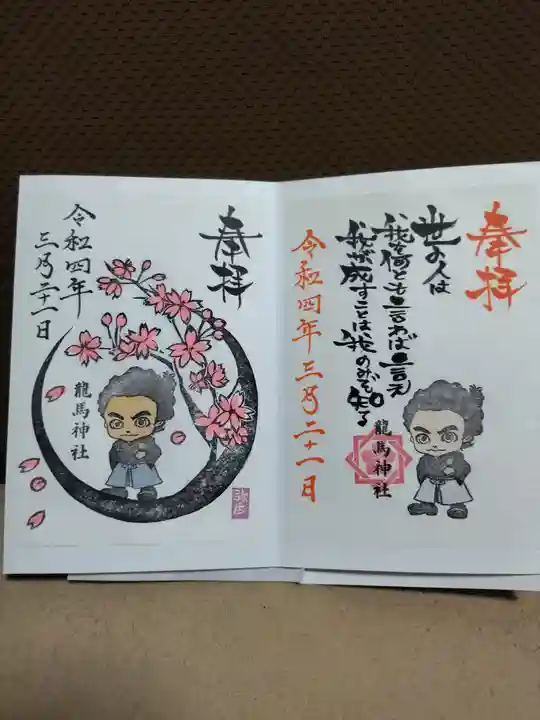 奉拝
世の人は
我を何とも言わば言え
我が成すことは我のみぞ知る
龍馬神社
令和四年三月二十一日
奉拝
龍馬神社
令和四年
三月二十一日